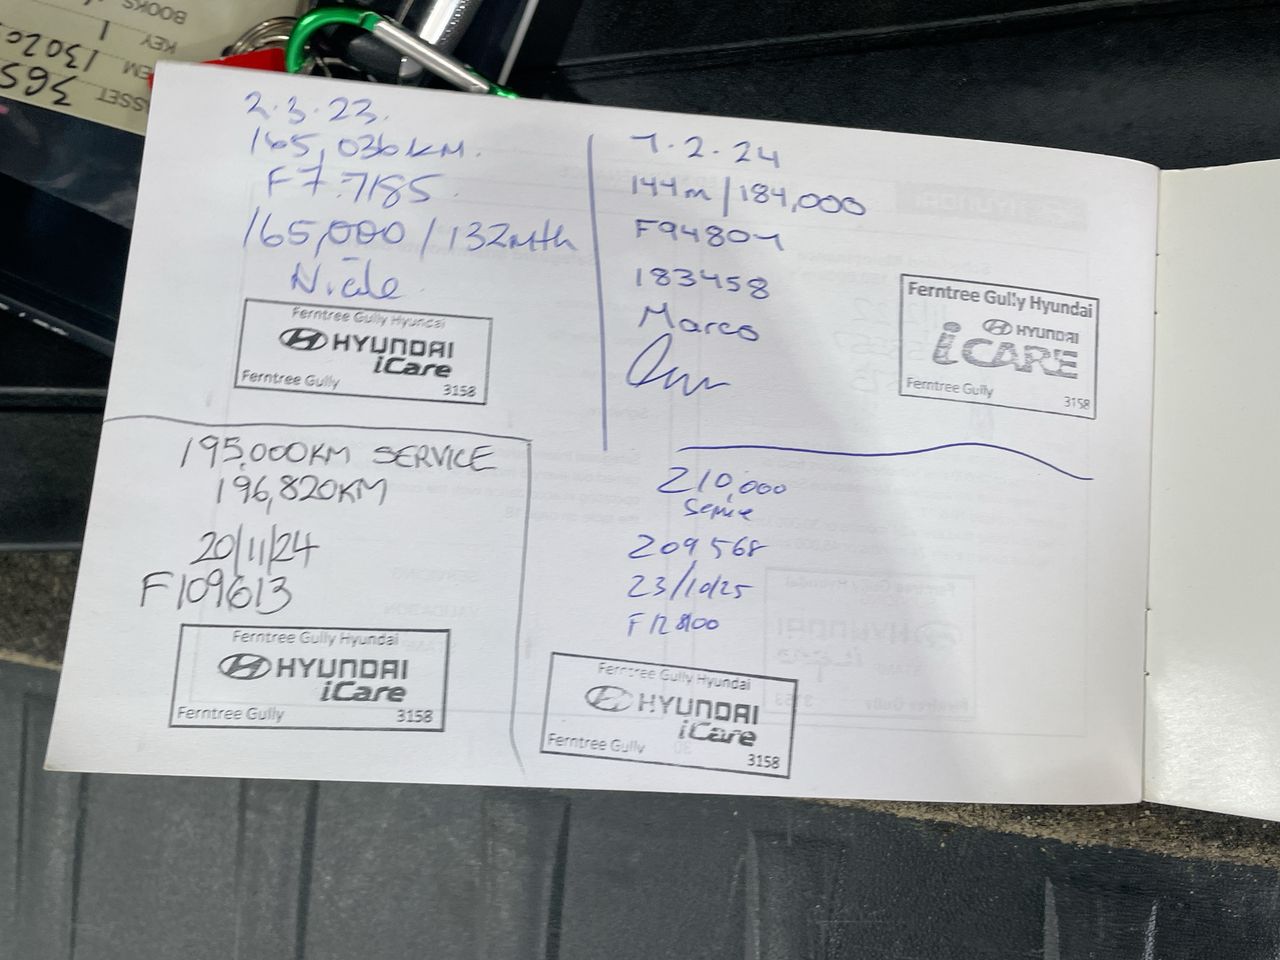 BOOKS
KEY 1
1302
ASSET 365
2.3.23.
165,036KM.
F77185
165,000/132mth
Nicole
Ferntree Gully Hyundai
HYUNDAI
iCare
Ferntree Gully 3158
7.2.24
144m/184,000
F94804
183458
Marco
Ferntree Gully Hyundai
HYUNDAI
iCARE
Ferntree Gully 3158
195,000KM SERVICE
196,820KM
20/11/24
F109613
Ferntree Gully Hyundai
HYUNDAI
iCare
Ferntree Gully 3158
210,000
Service
209568
23/10/25
F128100
Ferntree Gully Hyundai
HYUNDAI
iCare
Ferntree Gully 3158